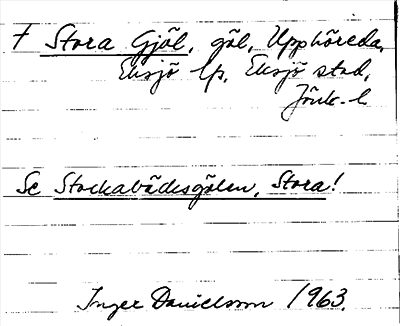 † Stora Gjöl, göl, Upphöreda,
Eksjö lfs, Eksjö stad,
Jönk. l
Se Stockabäcksgölen, Stora!
Inger Danielsson 1963.